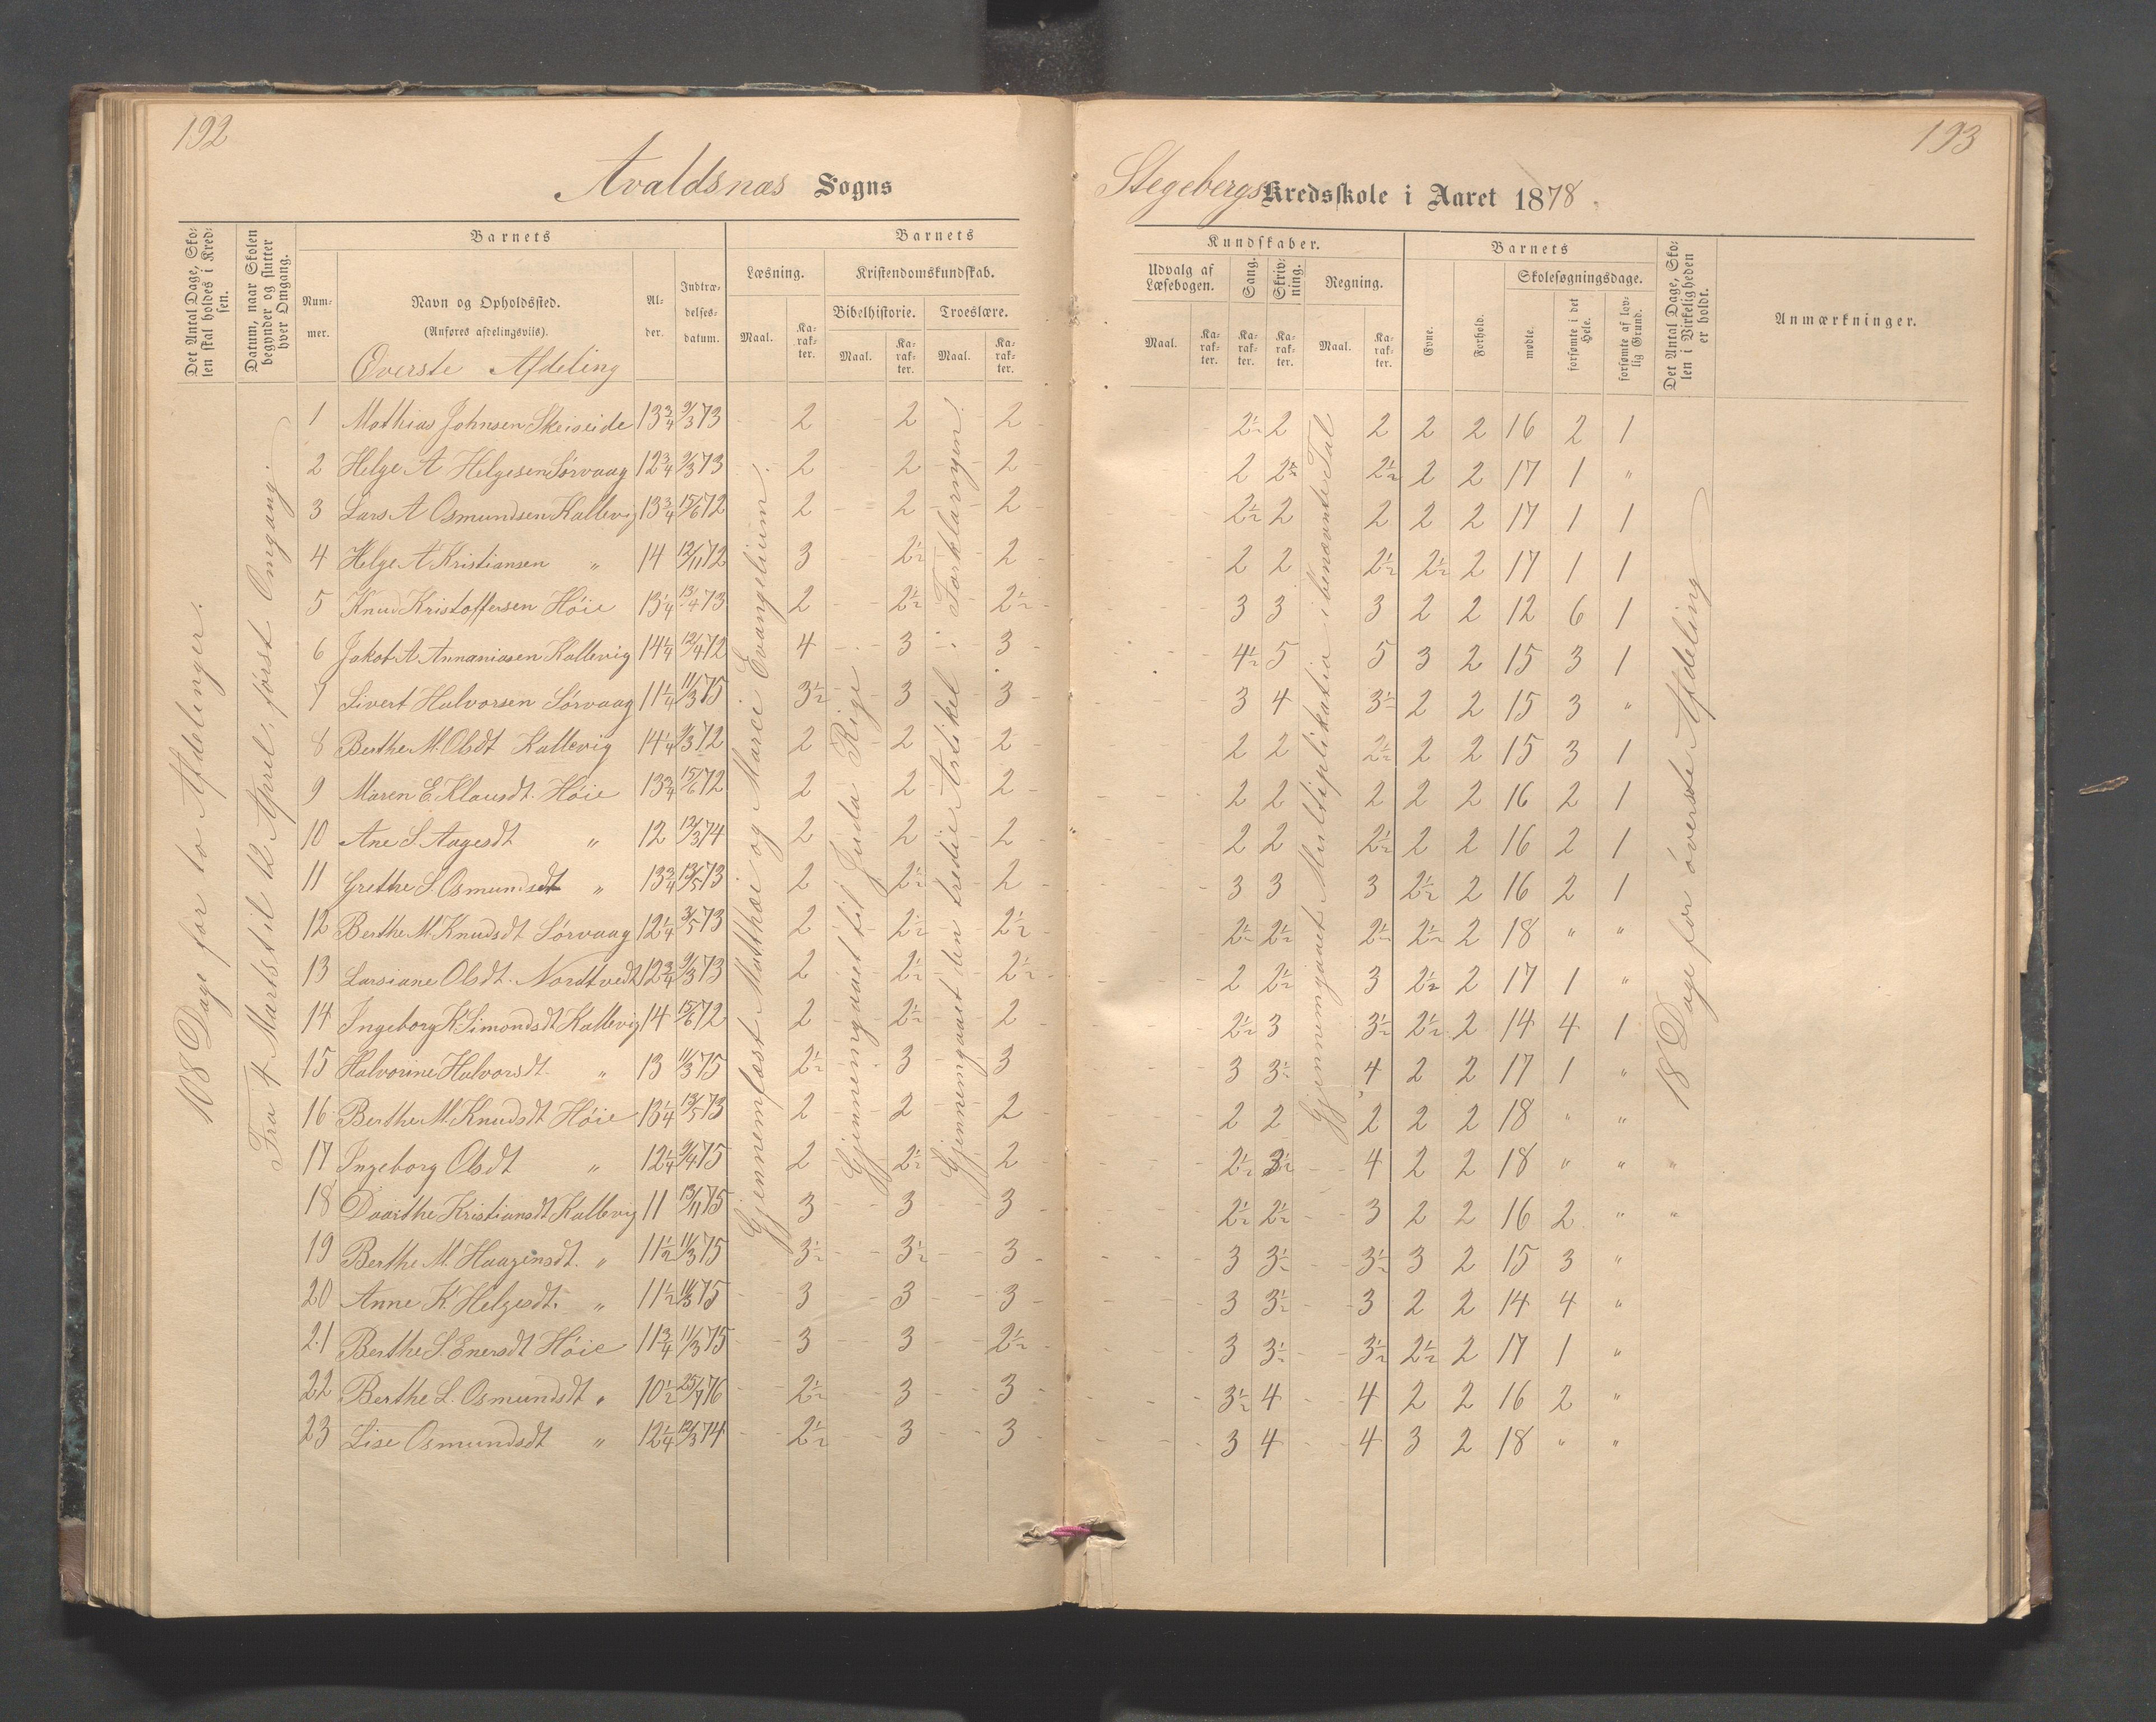 192
Avaldsnæs Sogns
Det Antal Dage, Skolen skal holdes i Kredsen.
Datum, naar Skolen begynder og slutter hver Omgang.
Barnets
Nummer.
Navn og Opholdssted.
(Anføres afdelingsvils).
Alder.
Indtrædelsesdatum.
Barnets
Læsning.
Kristendomskundskab.
Bibelhistorie.
Troeslære.
Maal.
Karakter.
Maal.
Karakter.
Maal.
Karakter.
Øverste Afdeling
108 Dage for to Afdelinger.
Fra 4 Marts til 12 April, først Omgang.
Gjennemlæst Matthæi og Marci Evangelium.
Gjennemgaaet til Juda Rige
Gjennemgaaet den tredie Artikel i Forklaringen.
1 Mathias Johnsen Skeiseide 13 3/4 9/3 73 2 2 2
2 Helge A Helgesen Sørvaag 12 3/4 9/3 73 2 2 2
3 Lars A Osmundsen Kallevig 13 3/4 15/6 72 2 2 2
4 Helge A Kristiansen " 14 12/11 72 3 2 1/2 2
5 Knud Kristoffersen Høie 13 1/4 13/4 73 2 2 1/2 2 1/2
6 Jakob A Annaniasen Kallevig 14 1/4 12/4 72 4 3 3
7 Sivert Halvorsen Sørvaag 11 1/4 11/3 75 3 1/2 3 3
8 Berthe M. Olsdt Kallevig 14 1/4 9/3 72 2 2 2
9 Maren E. Klausdt. Høie 13 3/4 15/6 72 2 2 2
10 Ane S. Aagesdt " 12 12/3 74 2 2 2
11 Grethe S. Osmundsdt " 13 3/4 13/5 73 2 2 1/2 2
12 Berthe M. Knudsdt Sørvaag 12 1/4 3/5 73 2 2 1/2 2 1/2
13 Larsiane Olsdt. Nordtvedt 12 3/4 9/3 73 2 2 1/2 2 1/2
14 Ingeborg K. Simondsdt Kallevig 14 15/6 72 2 2 1/2 2
15 Halvorine Halvorsdt. " 13 11/3 75 2 1/2 3 3
16 Berthe M. Knudsdt Høie 13 1/4 13/5 73 2 2 2
17 Ingeborg Olsdt " 12 1/4 9/4 75 2 2 1/2 2
18 Daarthe Kristiansdt Kallevig 11 13/11 75 3 3 3
19 Berthe M. Haagensdt. " 11 1/2 11/3 75 3 1/2 3 1/2 3
20 Anne K. Helgesdt. " 11 1/2 11/3 75 3 3 3
21 Berthe S. Enersdt Høie 11 3/4 11/3 75 3 3 2 1/2
22 Berthe L. Osmundsdt " 10 1/2 25/7 76 2 1/2 3 3
23 Lise Osmundsdt " 12 1/4 12/3 74 2 1/2 3 3
193
Stegebergs Kredsskole i Aaret 1878.
Kundskaber.
Udvalg af Læsebogen.
Sang.
Skrivning.
Regning.
Maal.
Karakter.
Karakter.
Karakter.
Maal.
Karakter.
Barnets
Evne.
Forhold.
Skolesøgningsdage.
mødte.
forsømte i det Hele.
forsømte af lovlig Grund.
Det Antal Dage, Skolen i Virkeligheden er holdt.
Anmærkninger.
Gjennemgaaet Multiplikation i benævnte Tal
18 Dage for øverste Afdeling
2 1/2 2 2 2 2 16 2 1
2 2 1/2 2 1/2 2 2 17 1 "
2 1/2 2 2 2 2 17 1 1
2 2 2 1/2 2 1/2 2 17 1 1
3 3 3 2 2 12 6 1
4 1/2 5 5 3 2 15 3 1
3 4 3 1/2 2 2 15 3 "
2 2 2 1/2 2 2 15 3 1
2 2 2 2 2 16 2 1
2 2 2 1/2 2 2 16 2 1
3 3 3 2 1/2 2 16 2 1
2 1/2 2 1/2 2 1/2 2 1/2 2 18 " "
2 2 1/2 3 2 1/2 2 17 1 "
2 1/2 3 3 1/2 2 1/2 2 14 4 1
3 3 1/2 4 2 2 17 1 "
2 2 2 2 2 18 " "
2 1/2 3 1/2 4 2 2 18 " " "
2 1/2 2 1/2 3 2 2 16 2 " "
3 3 1/2 3 1/2 3 2 15 3 "
3 3 1/2 3 2 2 14 4 "
3 3 1/2 3 1/2 2 1/2 2 17 1 "
3 1/2 4 4 2 2 16 2 "
3 4 4 3 2 18 " "